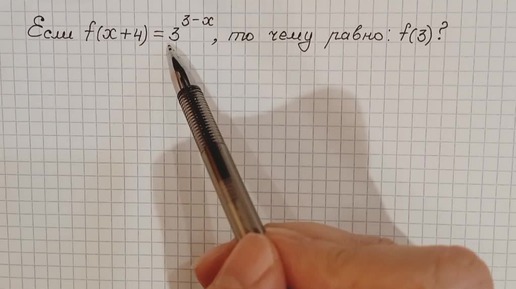 Если f(x+4) = 3^{3-x}, то чему равно: f(3)?